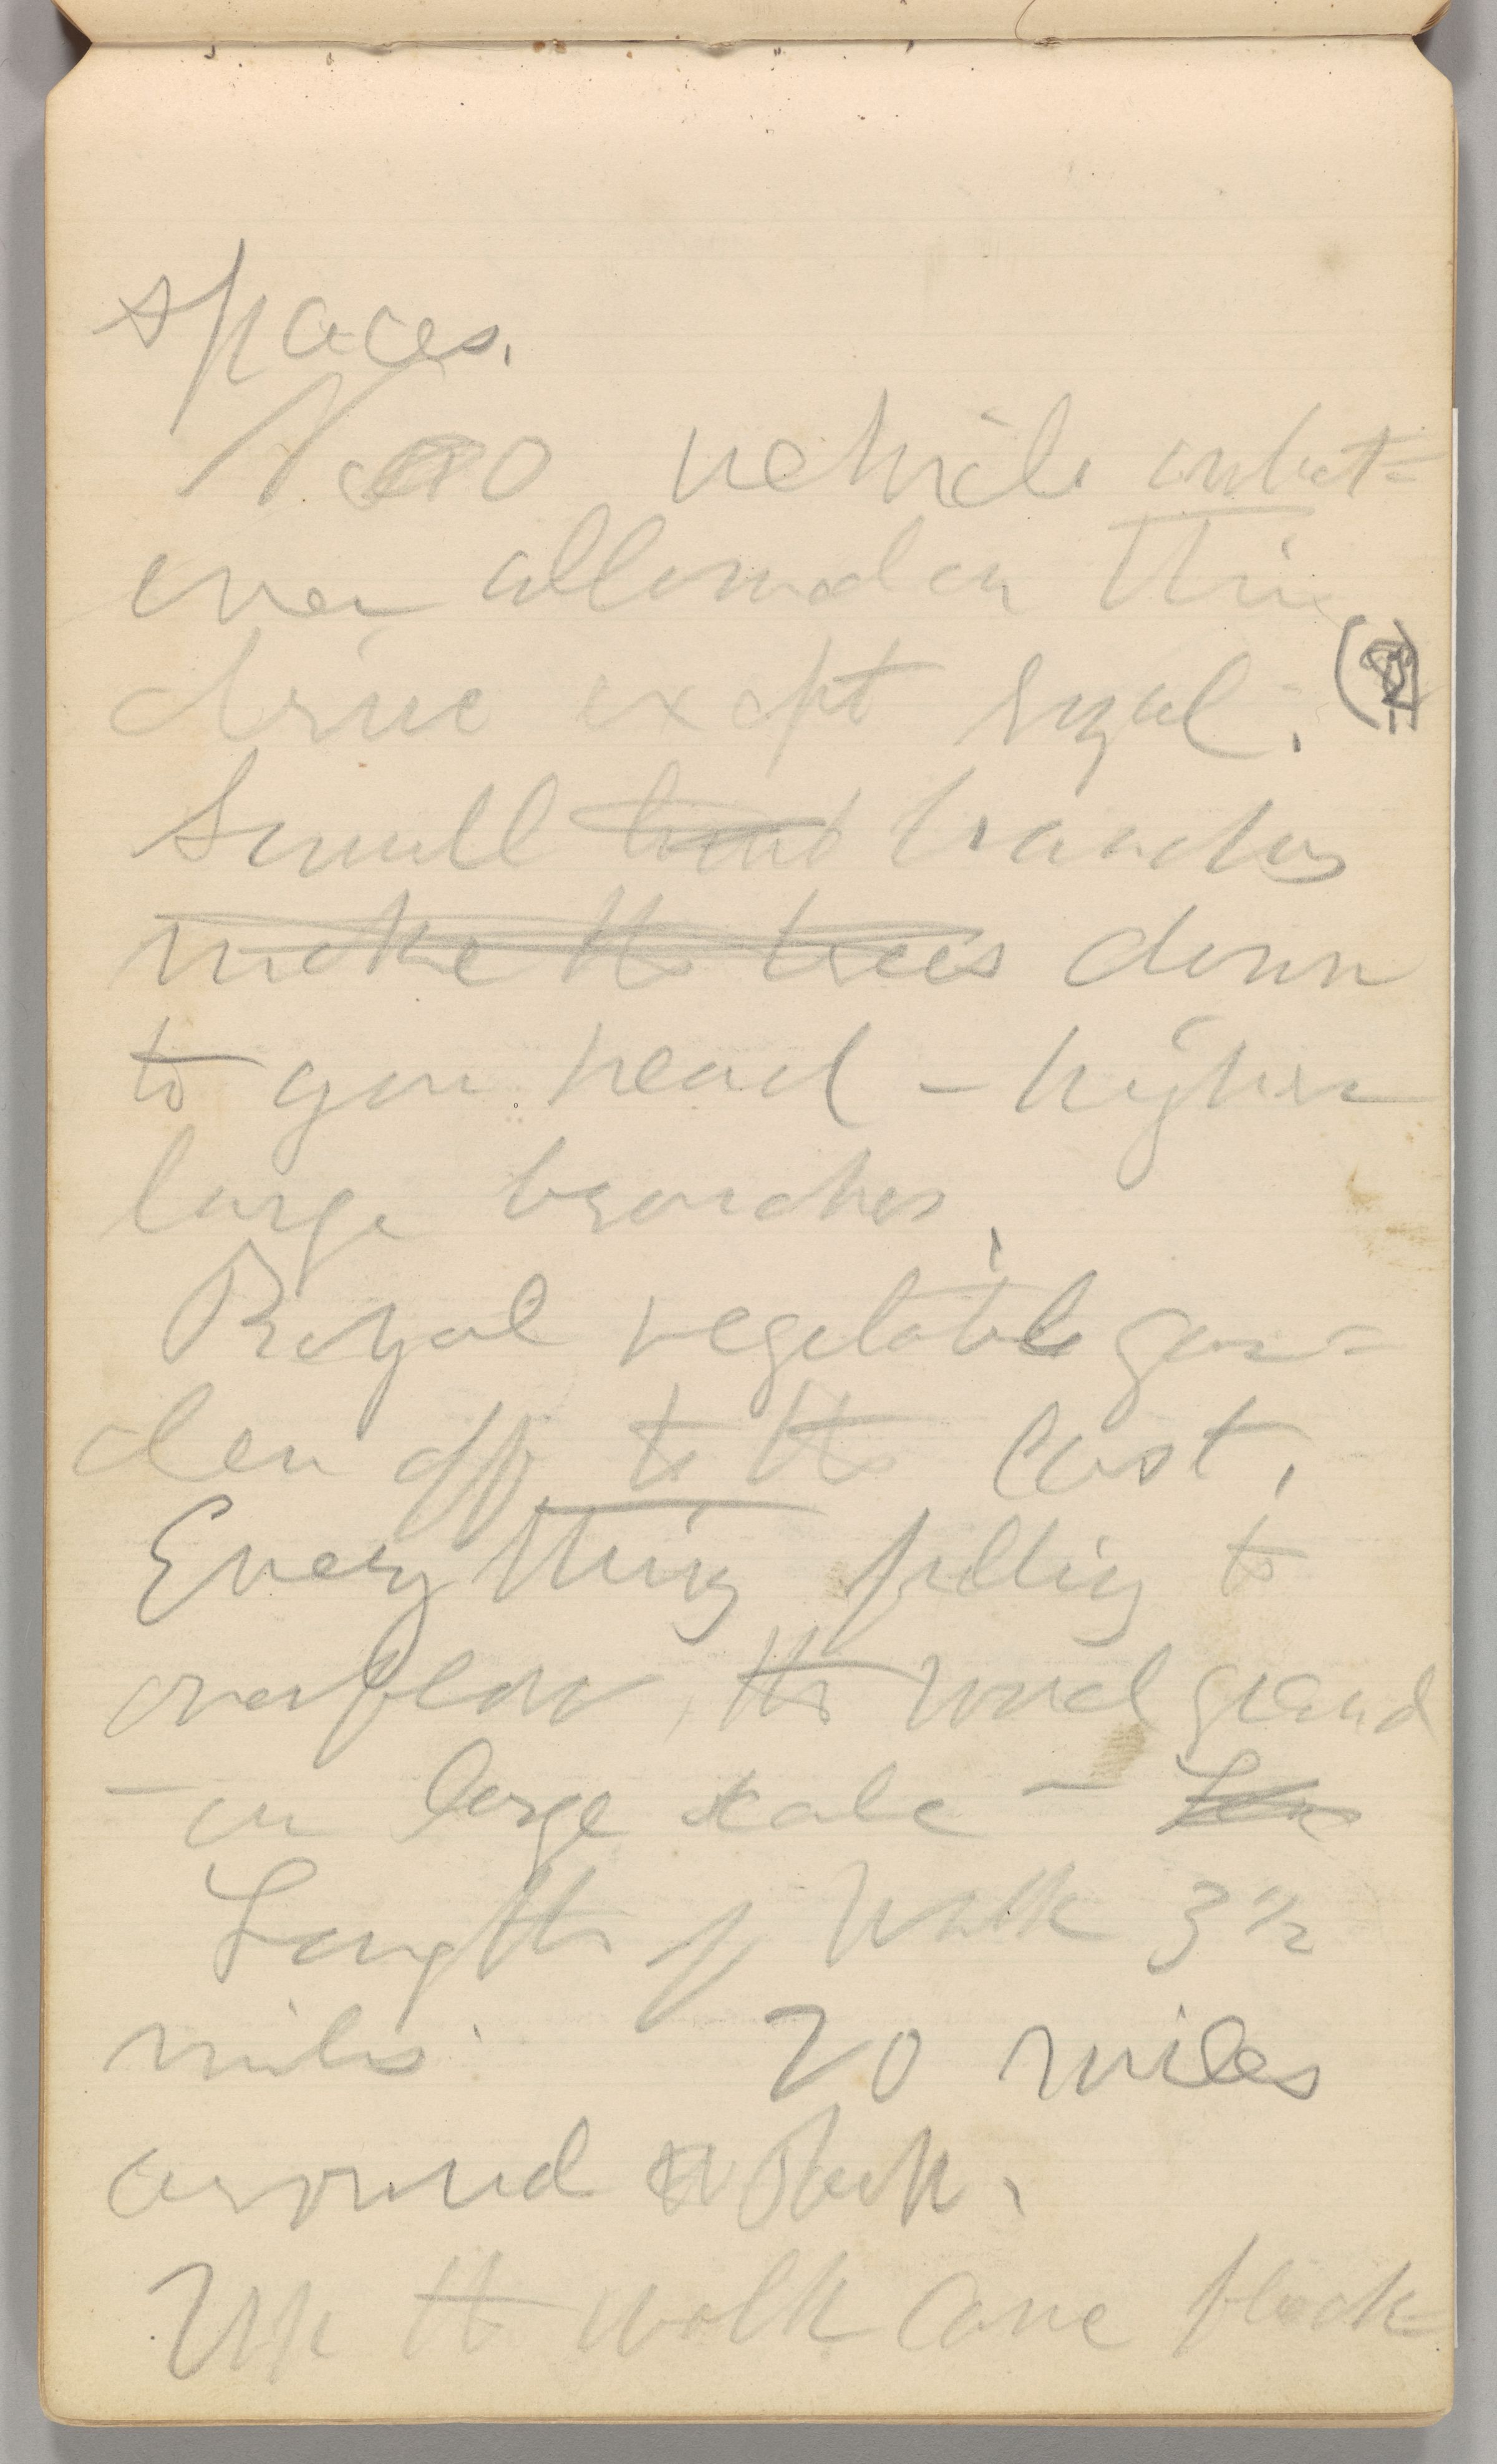 spaces.
No vehicle what=
ever allowed on this
drive except royal.
Small branches
make the trees down
to your head – higher
large branches.
Royal vegetable gar=
den off to the East.
Everything filling to
overflow, the word grand
– on large scale –
Length of walk 3 1/2
miles. 20 miles
around Park.
Up the walk come flock